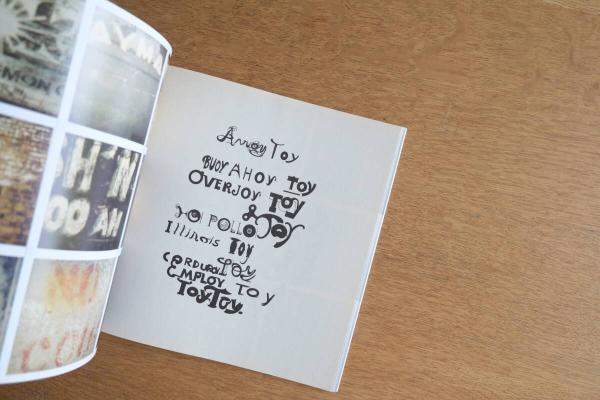 AYMA
MON
H'N
00 AM
CO
Annoy Toy
BUOY AHOY TOY
OVERJOY TOY
HOI POLLOI TOY
Illinois TOY
CORDUROY TOY
EMPLOY TOY
TOY TOY.